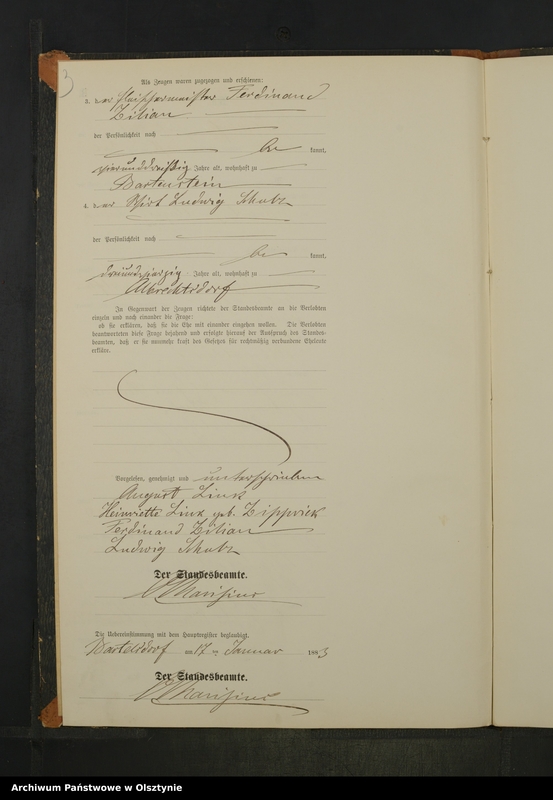 3
Als Zeugen waren zugezogen und erschienen:
3. der Fleischermeister Ferdinand
Zilian
der Persönlichkeit nach
be kannt,
vierunddreißig Jahre alt, wohnhaft zu
Bartenstein
4. der Wirt Ludwig Schulz
der Persönlichkeit nach
be kannt,
dreiundvierzig Jahre alt, wohnhaft zu
Albrechtsdorf
In Gegenwart der Zeugen richtete der Standesbeamte an die Verlobten
einzeln und nach einander die Frage:
ob sie erklären, daß sie die Ehe mit einander eingehen wollen. Die Verlobten
beantworteten diese Frage bejahend und erfolgte hierauf der Ausspruch des Standes-
beamten, daß er sie nunmehr kraft des Gesetzes für rechtmäßig verbundene Eheleute
erkläre.
Vorgelesen, genehmigt und unterschrieben
August Link
Heinriette Link geb. Zipprick
Ferdinand Zilian
Ludwig Schulz
Der Standesbeamte.
Die Uebereinstimmung mit dem Hauptregister beglaubigt,
am 17 ten Januar 1883
Der Standesbeamte.
Archiwum Państwowe w Olsztynie